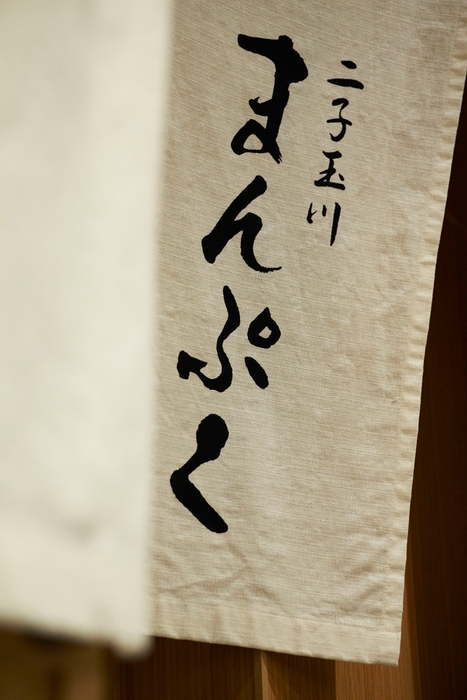 二子玉川
まんぷく